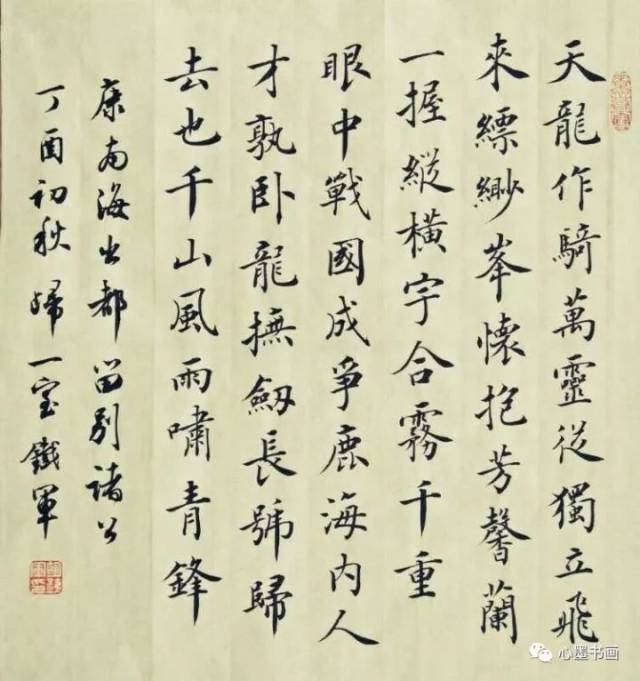 天龍作騎萬靈從獨立飛
來縹緲峯懷抱芳馨蘭
一握縱橫宇合霧千重
眼中戰國成爭鹿海內人
才孰卧龍撫劔長號歸
去也千山風雨嘯青鋒
康南海出都留別諸公
丁酉初秋歸一室鐵軍
心墨书画